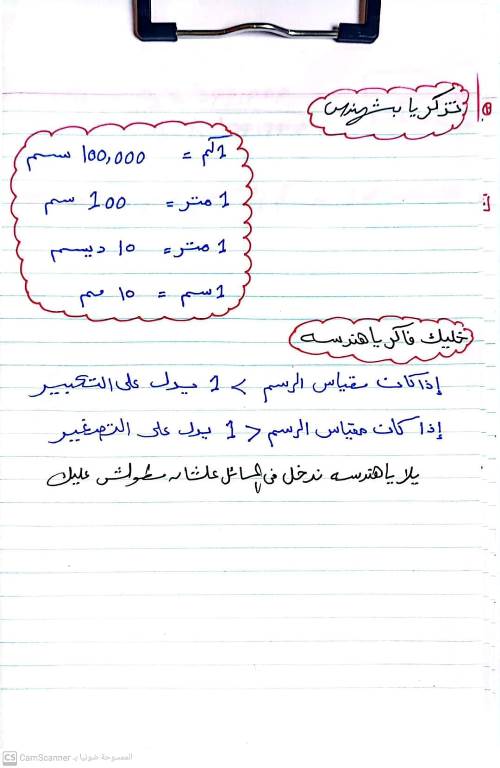 تذكر يا بشمهندس
1 كم = 100,000 سم
1 متر = 100 سم
1 متر = 10 ديسم
1 سم = 10 مم
خليك فاكر يا هندسه
إذا كان مقياس الرسم > 1 يدل على التكبير
إذا كان مقياس الرسم < 1 يدل على التصغير
يلا يا هندسه ندخل في المسائل علشان مطولش عليك
CS CamScanner الممسوحة ضوئيا بـ